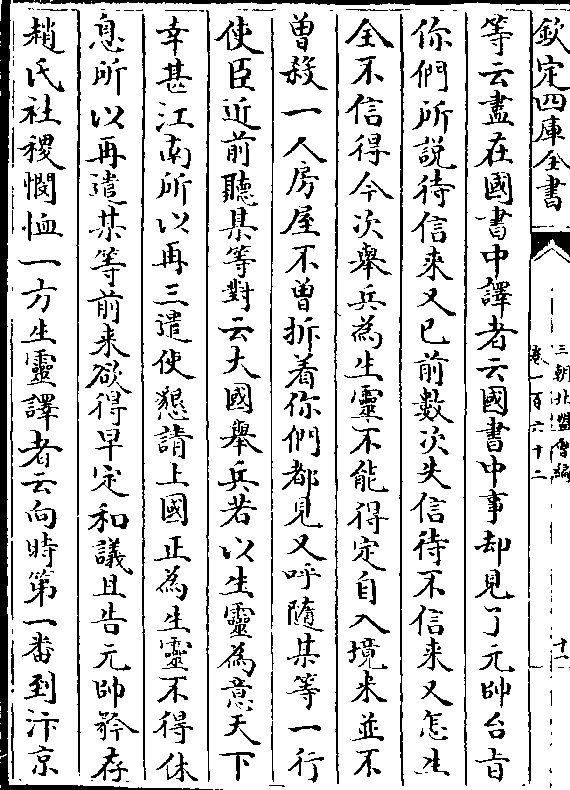 欽定四庫全書
三朝北盟會編
卷一百六十二
十一
等云盡在國書中譯者云國書中事却見了元帥台旨
你們所說待信来又已前數次失信待不信来又怎生
全不信得今次舉兵為生靈不能得定自入境来並不
曽殺一人房屋不曽拆着你們都見又呼隨某等一行
使臣近前聽某等對云大國舉兵若以生靈為意天下
幸甚江南所以再三遣使懇請上國正為生靈不得休
息所以再遣某等前来欲得早定和議且告元帥矜存
趙氏社稷憫恤一方生靈譯者云向時第一番到汴京